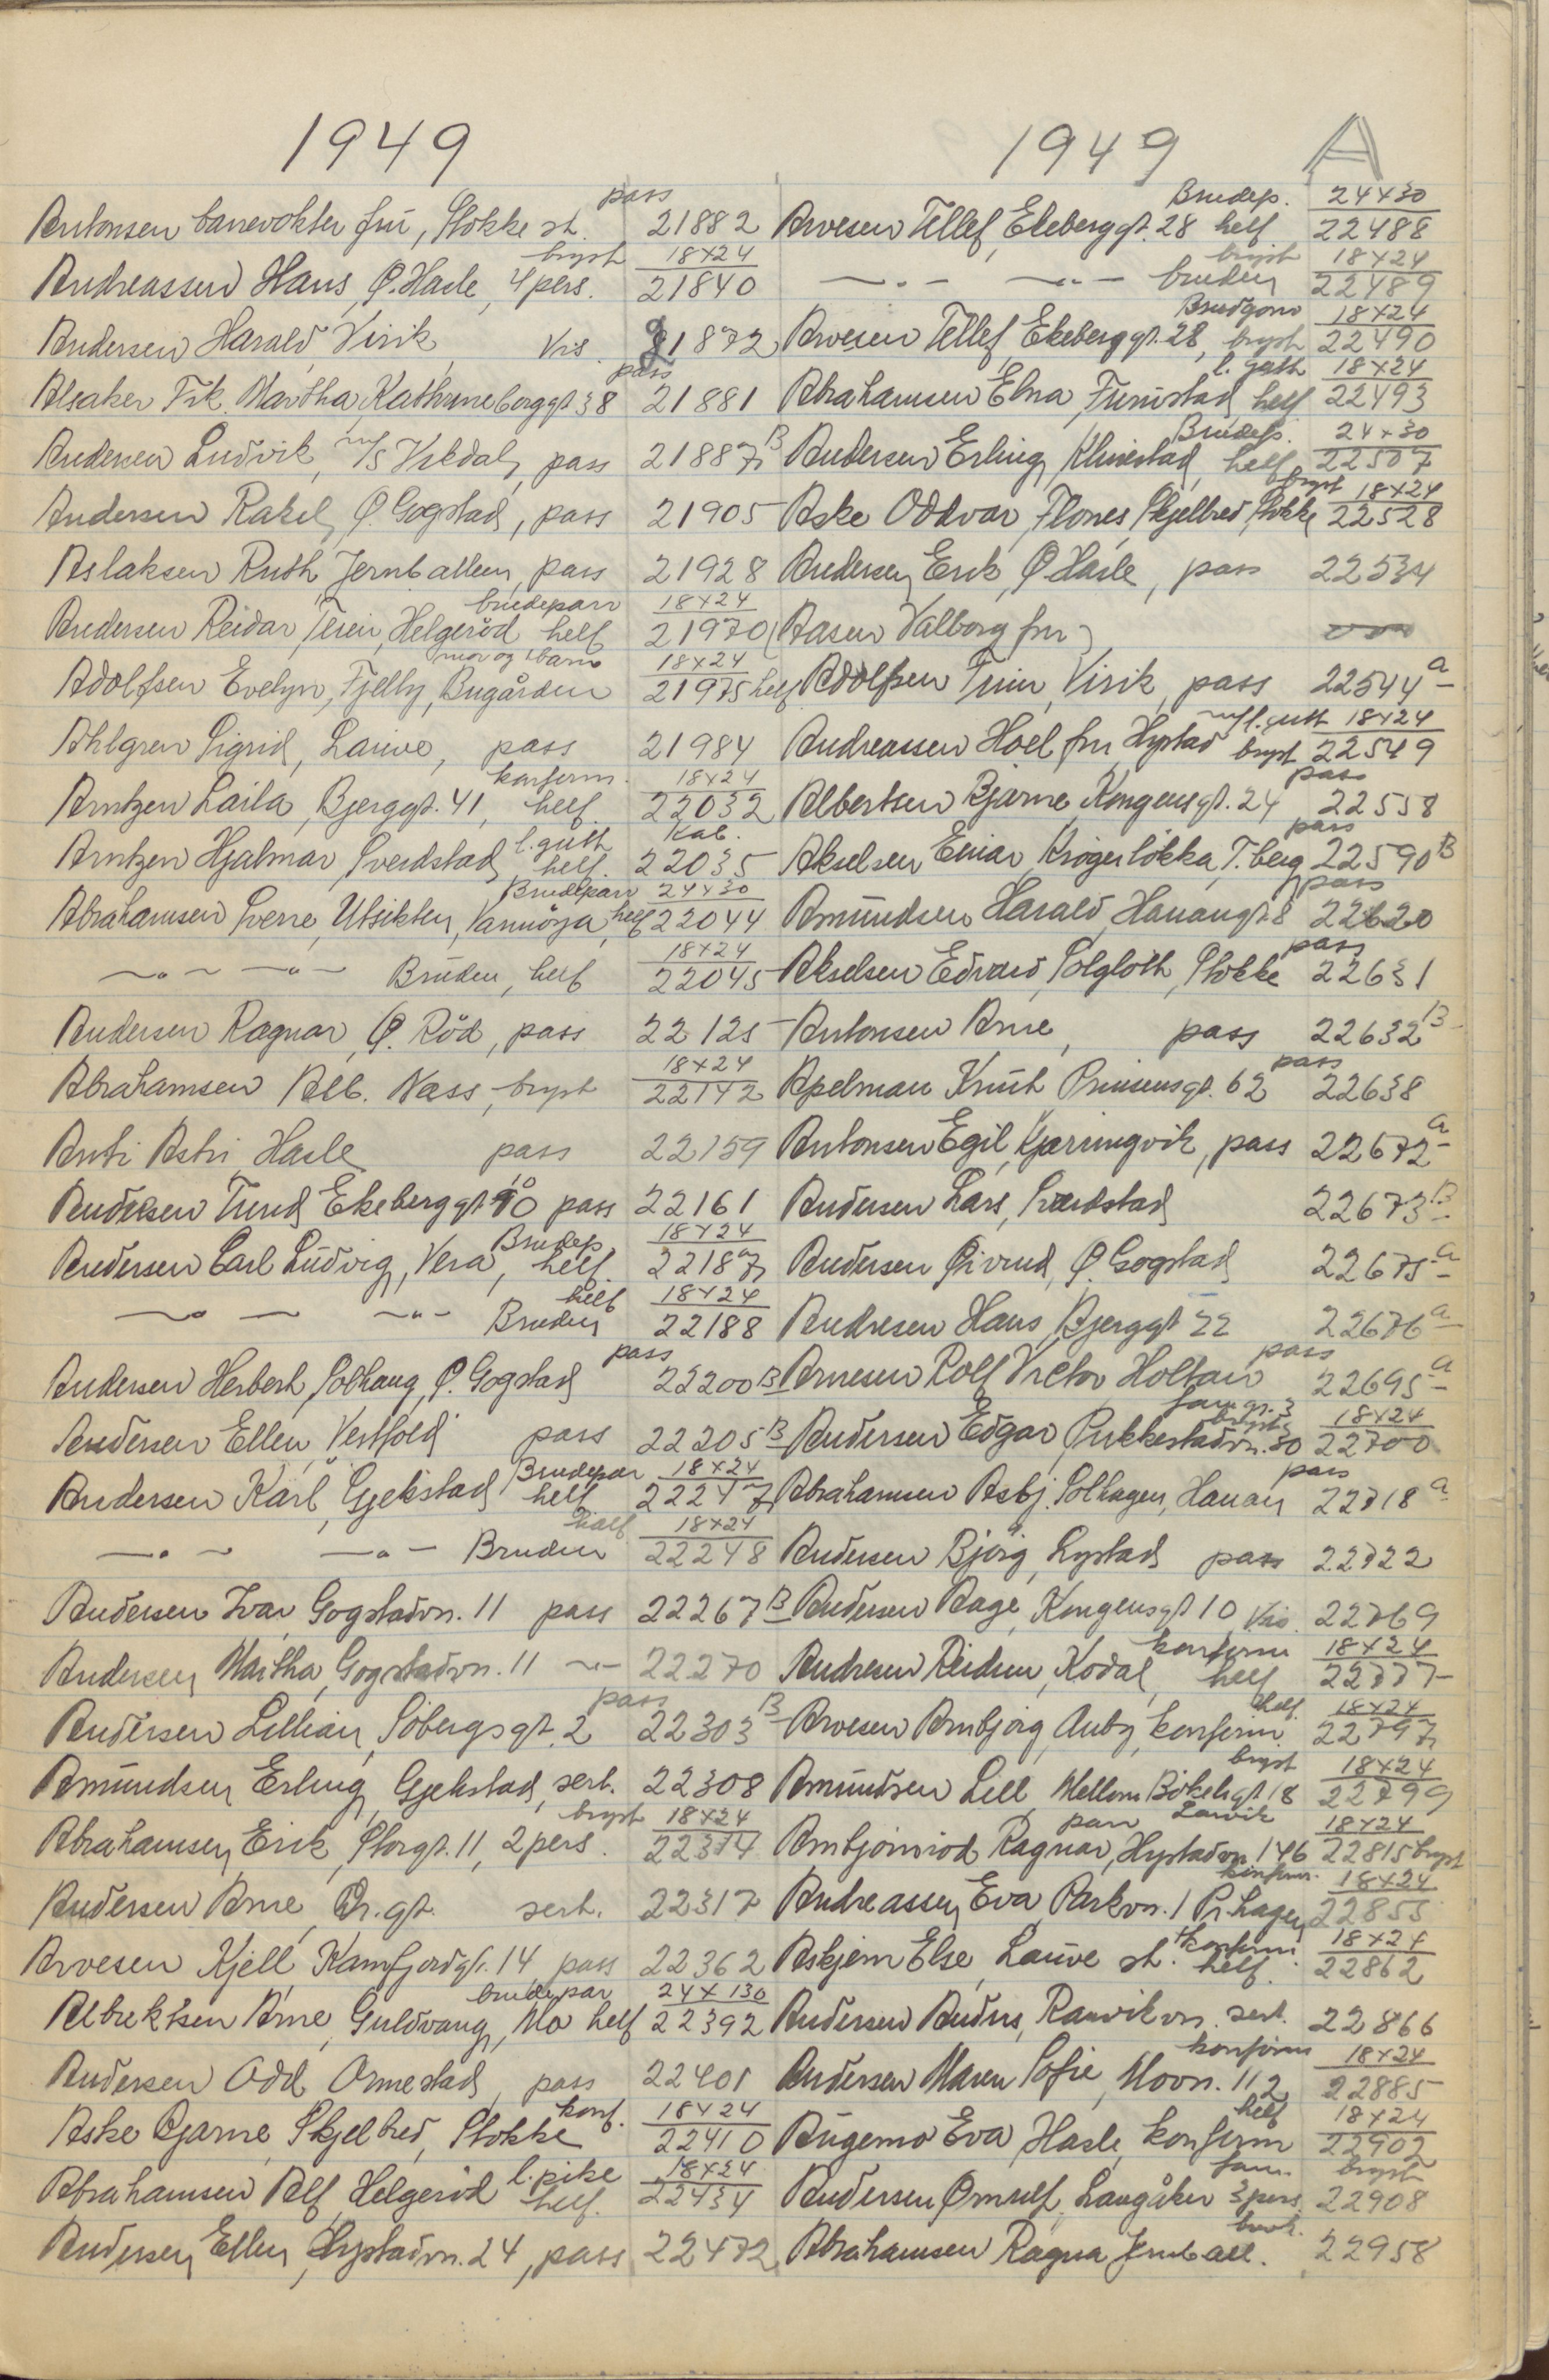 1949
Antonsen banevokter fru, Stokke st. pass 21882
Andreassen Hans, Ø. Hasle, 4 pers. bryst 18x24 21840
Andersen Harald Virik, Vis. 21872
Alsaker Frk. Martha, Kathrineborggt 38 pass 21881
Andersen Ludvik, m/s Vikdal, pass 21887 B
Andersen Rakel, Ø. Gogstad, pass 21905
Aslaksen Ruth, Jernballeen, pass 21928
Andersen Reidar, Helgeröd brudeparr helf 18x24 21970
Adolfsen Evelyn, Fjelly, Bugården mor og 1 barn 18x24 21975 helf
Ahlgren Sigrid, Lauve, pass 21984
Arntzen Laila, Bjerggt. 41, konferm. helf. 18x24 22032
Arntzen Hjalmar, Sverdstad l. gutt helf. Kab. 22035
Abrahamsen Sverre, Utsikten, Brudeparr helf 24x30 22044
—"— —"— Bruden, helf 18x24 22045
Andersen Ragnar, Ø. Röd, pass 22125
Abrahamsen Alb. Næss, bryst 18x24 22142
Anti Astri Hasle pass 22159
Andersen Trud, Ekeberggt 10 pass 22161
Andersen Carl Ludvig, Vera, Brudep helf. 18x24 22187
—"— —"— Bruden helf 18x24 22188
Andersen Herbert Solhaug, Ø. Gogstad pass 22200 B
Andersen Ellen, Vestfold pass 22205 B
Andersen Karl, Gjekstad Brudepar helf 18x24 22247
—"— —"— Bruden half 18x24 22248
Andersen Ivar, Gogstadvn. 11 pass 22267 B
Andersen Martha, Gogstadvn. 11 —"— 22270
Andersen Lillian, Söbergsgt. 2 pass 22303 B
Amundsen Erling, Gjekstad, sert. 22308
Abrahamsen Erik, Storgt. 11, 2 pers. bryst 18x24 22314
Andersen Arne, Dr. gt. sert. 22317
Arvesen Kjell, Kamfjordgt. 14 pass 22362
Albrektsen Arne, Guldvang, Mo brudepar helf 24x130 22392
Andersen Odd Ormestad, pass 22401
Aske Bjarne, Skjelbred, Stokke konf. 18x24 22410
Abrahamsen Alf, Helgeröd l. pike helf. 18x24 22434
Andersen Ellen, Hystadvn. 24, pass 22472
1949 A
Arvesen Tellef, Ekeberggt. 28 Brudep. helf 24x30 22488
—"— —"— bruden bryst 18x24 22489
Arvesen Tellef, Ekeberggt. 28, Brudgom bryst 18x24 22490
Abrahamsen Elna, Furustad, l. gutt helf 18x24 22493
Andersen Erling, Klinestad, Brudep. helf 24x30 22507
Aske Oddvar, Flones, Skjelbred, Stokke bryst 18x24 22528
Andersen Erik, Ø Hasle, pass 22534
(Aasen Valborg fru)
Adolfsen Virik, pass 22544 a
Andreassen Hoel fru, Hystad m/l. gutt bryst 18x24 22549
Albertsen Bjarne, Kongensgt. 24 pass 22558
Akselsen Einar, Krögerlökka, T. berg pass 22590 B
Amundsen Harald, Hauangt. 8 pass 22620
Akselsen Edvard, Solgløtt, Stokke pass 22631
Antonsen Arne, pass 22632 B
Apelman Knut Prinsensgt. 62 pass 22638
Antonsen Egil, Kjærringvik, pass 22672 a
Andersen Lars, Sverdstad 22673 B
Andersen Øivind, Ø. Gogstad 22675 a
Andresen Hans, Bjerggt 22 22676 a
Arnesen Rolf Victor Holtan pass 22695 a
Andersen Edgar, Pukkestadvn. 30 fam. gr. 3 bryst 18x24 22700
Abrahamsen Asbj. Solhagen, Hauan pass 22718 a
Andersen Björg, Lystad pass 22722
Andersen Aage, Kongensgt 10 Vis. 22769
Andresen Reidun, Kodal, konferm helf 18x24 22777
Arvesen Arnbjörg, Auby, konferm. helf. 18x24 22797
Amundsen Lill, Mellom Bökeligt. 18 Larvik bryst 18x24 22799
Arnbjörnröd Ragnar, Hystadvn 146 parr 18x24 22815 bryst
Andreassen Eva, Parkvn. 1 Pr. hagen konferm. 18x24 22855
Askjem Else, Lauve st. konferm. helf. 18x24 22862
Andersen Anders, Ranvikvn. sert. 22866
Andersen Maren Sofie, Movn. 112 konferm 18x24 22885
Augemo Eva, Hasle, konferm helf 18x24 22902
Andersen Ørnulf, Langåker 3 pers. fam. bryst 22908
Abrahamsen Ragna Jernb all. 22958